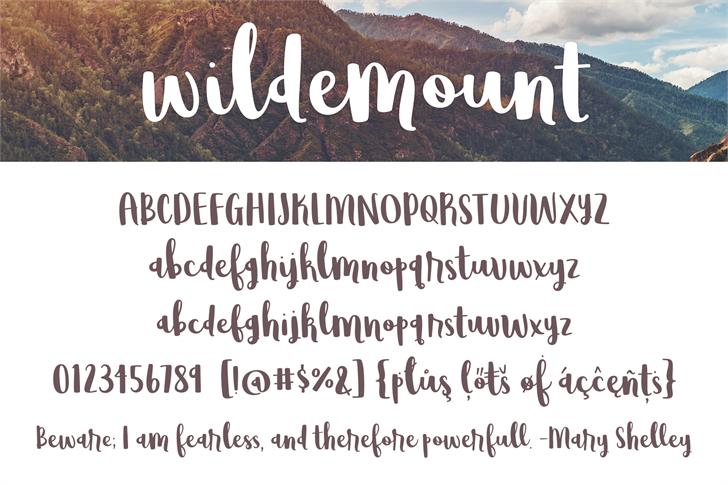 wildemount
ABCDEFGHIJKLMNOPQRSTUVWXYZ
abcdefghijklmnopqrstuvwxyz
abcdefghijklmnopqrstuvwxyz
0123456789 [!@#$%&] {plůş ļőťš øf áçčęñţś}
Beware; I am fearless, and therefore powerfull. -Mary Shelley